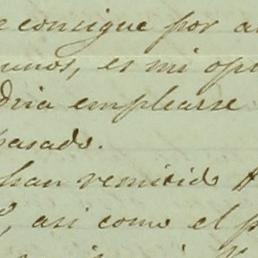 e consigue por a
unos, es mi opi
dria emplearse
pasado.
han remitido
, asi como el p